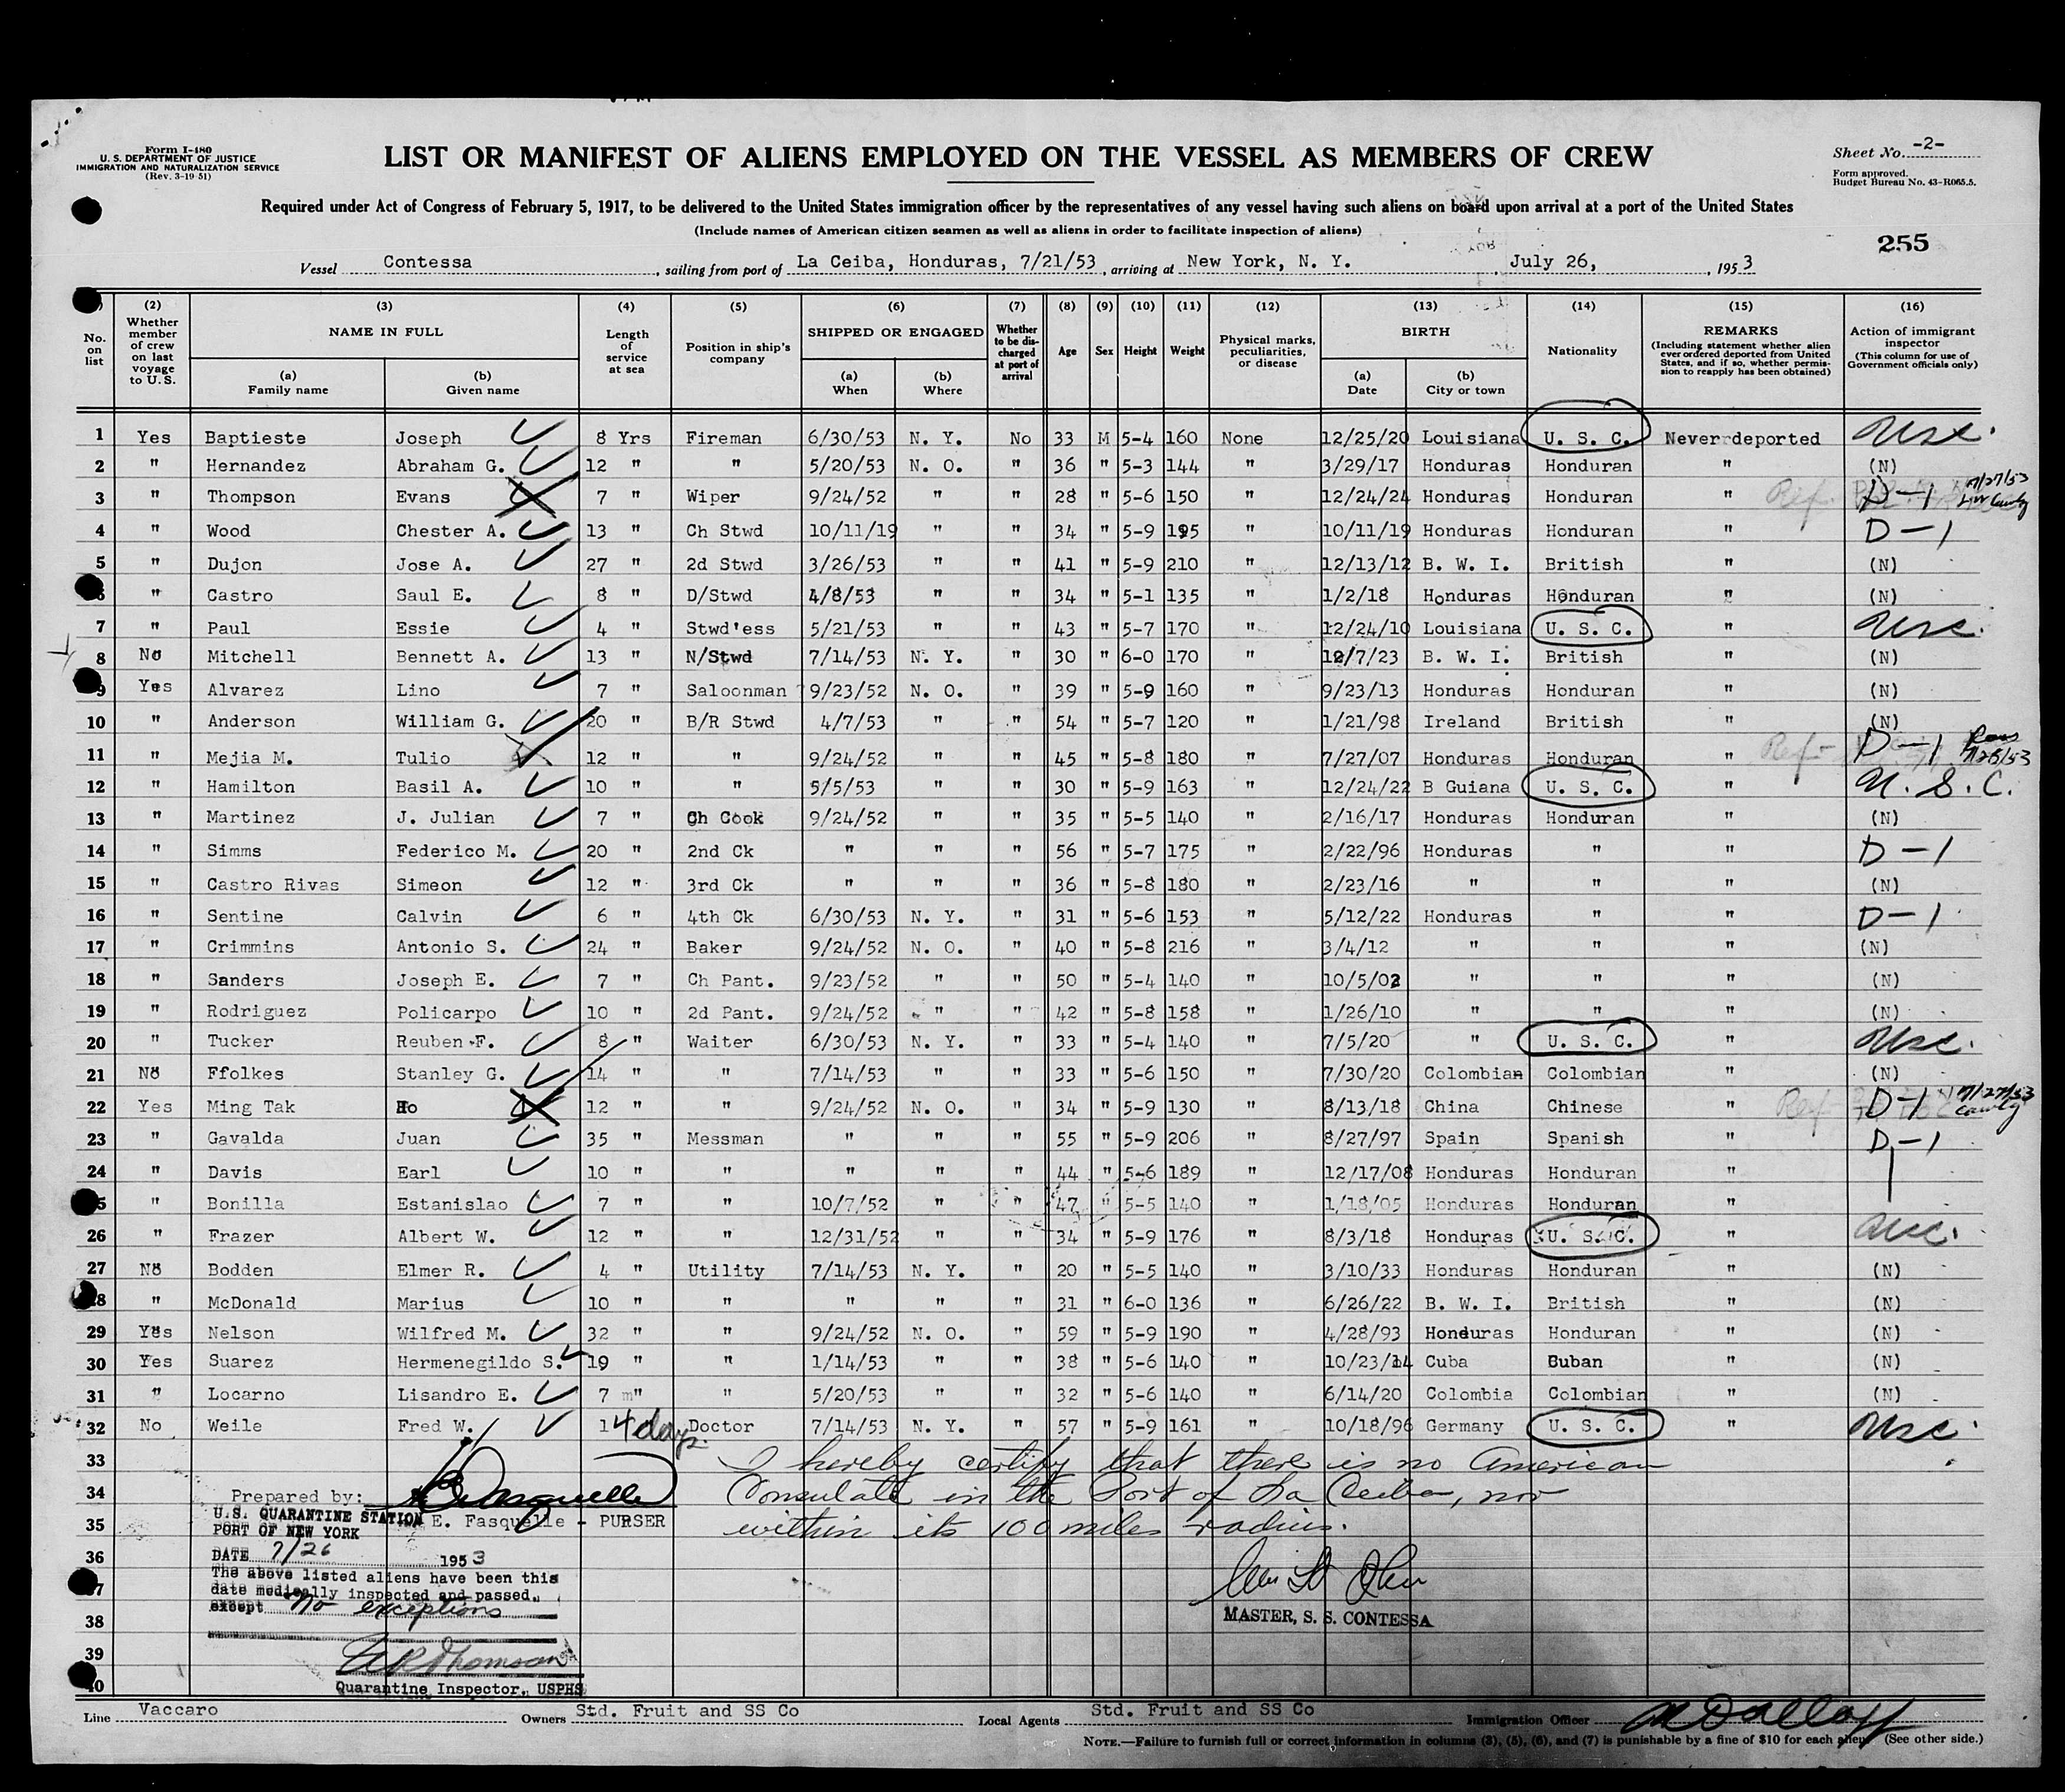 Form I-480
U. S. DEPARTMENT OF JUSTICE
IMMIGRATION AND NATURALIZATION SERVICE
(Rev. 3-19-51)
LIST OR MANIFEST OF ALIENS EMPLOYED ON THE VESSEL AS MEMBERS OF CREW
Sheet No. -2-
Form approved.
Budget Bureau No. 43-R065.5.
Required under Act of Congress of February 5, 1917, to be delivered to the United States immigration officer by the representatives of any vessel having such aliens on board upon arrival at a port of the United States
(Include names of American citizen seamen as well as aliens in order to facilitate inspection of aliens)
255
Vessel Contessa, sailing from port of La Ceiba, Honduras, 7/21/53, arriving at New York, N. Y., July 26, 1953
(2) (3) (4) (5) (6) (7) (8) (9) (10) (11) (12) (13) (14) (15) (16)
No. on list
Whether member of crew on last voyage to U. S.
NAME IN FULL
(a) Family name
(b) Given name
Length of service at sea
Position in ship's company
SHIPPED OR ENGAGED
(a) When
(b) Where
Whether to be discharged at port of arrival
Age
Sex
Height
Weight
Physical marks, peculiarities, or disease
BIRTH
(a) Date
(b) City or town
Nationality
REMARKS
(Including statement whether alien ever ordered deported from United States, and if so, whether permission to reapply has been obtained)
Action of immigrant inspector
(This column for use of Government officials only)
1 Yes Baptieste Joseph 8 Yrs Fireman 6/30/53 N. Y. No 33 M 5-4 160 None 12/25/20 Louisiana U. S. C. Never deported USC.
2 " Hernandez Abraham G. 12 " " 5/20/53 N. O. " 36 " 5-3 144 " 3/29/17 Honduras Honduran " (N)
3 " Thompson Evans 7 " Wiper 9/24/52 " " 28 " 5-6 150 " 12/24/24 Honduras Honduran " D-1 7/27/53
4 " Wood Chester A. 13 " Ch Stwd 10/11/19 " " 34 " 5-9 195 " 10/11/19 Honduras Honduran " D-1
5 " Dujon Jose A. 27 " 2d Stwd 3/26/53 " " 41 " 5-9 210 " 12/13/12 B. W. I. British " (N)
6 " Castro Saul E. 8 " D/Stwd 4/8/53 " " 34 " 5-1 135 " 1/2/18 Honduras Honduran " (N)
7 " Paul Essie 4 " Stwd'ess 5/21/53 " " 43 " 5-7 170 " 12/24/10 Louisiana U. S. C. " USC.
8 No Mitchell Bennett A. 13 " N/Stwd 7/14/53 N. Y. " 30 " 6-0 170 " 12/7/23 B. W. I. British " (N)
9 Yes Alvarez Lino 7 " Saloonman 9/23/52 N. O. " 39 " 5-9 160 " 9/23/13 Honduras Honduran " (N)
10 " Anderson William G. 20 " B/R Stwd 4/7/53 " " 54 " 5-7 120 " 1/21/98 Ireland British " (N)
11 " Mejia M. Tulio 12 " " 9/24/52 " " 45 " 5-8 180 " 7/27/07 Honduras Honduran " D-1 7/28/53
12 " Hamilton Basil A. 10 " " 5/5/53 " " 30 " 5-9 163 " 12/24/22 B Guiana U. S. C. " U. S. C.
13 " Martinez J. Julian 7 " Ch Cook 9/24/52 " " 35 " 5-5 140 " 2/16/17 Honduras Honduran " (N)
14 " Simms Federico M. 20 " 2nd Ck " " " 56 " 5-7 175 " 2/22/96 Honduras " " D-1
15 " Castro Rivas Simeon 12 " 3rd Ck " " " 36 " 5-8 180 " 2/23/16 " " " (N)
16 " Sentine Calvin 6 " 4th Ck 6/30/53 N. Y. " 31 " 5-6 153 " 5/12/22 Honduras " " D-1
17 " Crimmins Antonio S. 24 " Baker 9/24/52 N. O. " 40 " 5-8 216 " 3/4/12 " " " (N)
18 " Sanders Joseph E. 7 " Ch Pant. 9/23/52 " " 50 " 5-4 140 " 10/5/02 " " " (N)
19 " Rodriguez Policarpo 10 " 2d Pant. 9/24/52 " " 42 " 5-8 158 " 1/26/10 " " " (N)
20 " Tucker Reuben F. 8 " Waiter 6/30/53 N. Y. " 33 " 5-4 140 " 7/5/20 " U. S. C. " USC.
21 No Ffolkes Stanley G. 14 " " 7/14/53 " " 33 " 5-6 150 " 7/30/20 Colombian Colombian " (N)
22 Yes Ming Tak Ho 12 " " 9/24/52 N. O. " 34 " 5-9 130 " 8/13/18 China Chinese " D-1 7/27/53
23 " Gavalda Juan 35 " Messman " " " 55 " 5-9 206 " 8/27/97 Spain Spanish " D-1
24 " Davis Earl 10 " " " " " 44 " 5-6 189 " 12/17/08 Honduras Honduran "
25 " Bonilla Estanislao 7 " " 10/7/52 " " 47 " 5-5 140 " 1/18/05 Honduras Honduran "
26 " Frazer Albert W. 12 " " 12/31/52 " " 34 " 5-9 176 " 8/3/18 Honduras U. S. C. " USC.
27 No Bodden Elmer R. 4 " Utility 7/14/53 N. Y. " 20 " 5-5 140 " 3/10/33 Honduras Honduran " (N)
28 " McDonald Marius 10 " " " " " 31 " 6-0 136 " 6/26/22 B. W. I. British " (N)
29 Yes Nelson Wilfred M. 32 " " 9/24/52 N. O. " 59 " 5-9 190 " 4/28/93 Honduras Honduran " (N)
30 Yes Suarez Hermenegildo S. 19 " " 1/14/53 " " 38 " 5-6 140 " 10/23/14 Cuba Cuban " (N)
31 " Locarno Lisandro E. 7 " " 5/20/53 " " 32 " 5-6 140 " 6/14/20 Colombia Colombian " (N)
32 No Weile Fred W. 14 days Doctor 7/14/53 N. Y. " 57 " 5-9 161 " 10/18/96 Germany U. S. C. " USC
33 I hereby certify that there is no American
34 Prepared by: Consulate in the Port of La Ceiba, nor
35 E. Fasquelle - PURSER within its 100 miles radius.
U.S. QUARANTINE STATION
PORT OF NEW YORK
36 DATE 7/26 1953
The above listed aliens have been this
37 date medically inspected and passed,
except no exceptions
MASTER, S. S. CONTESSA
38
39
40 Quarantine Inspector, USPHS
Line Vaccaro Owners Std. Fruit and SS Co Local Agents Std. Fruit and SS Co Immigration Officer
NOTE.—Failure to furnish full or correct information in columns (3), (5), (6), and (7) is punishable by a fine of $10 for each alien. (See other side.)